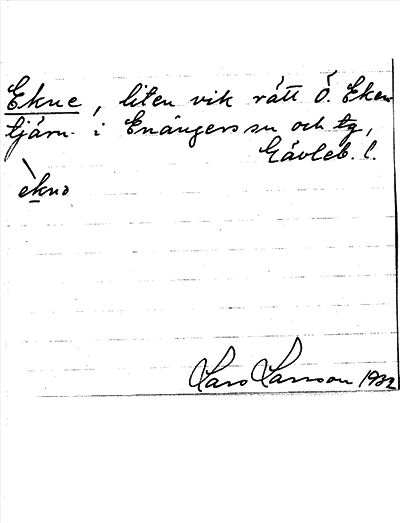 Ekne, liten vik rätt Ö. Eken
tjärn. i Enångers sn och tg,
Gävleb. l.
ekno
Lars Larsson 1932